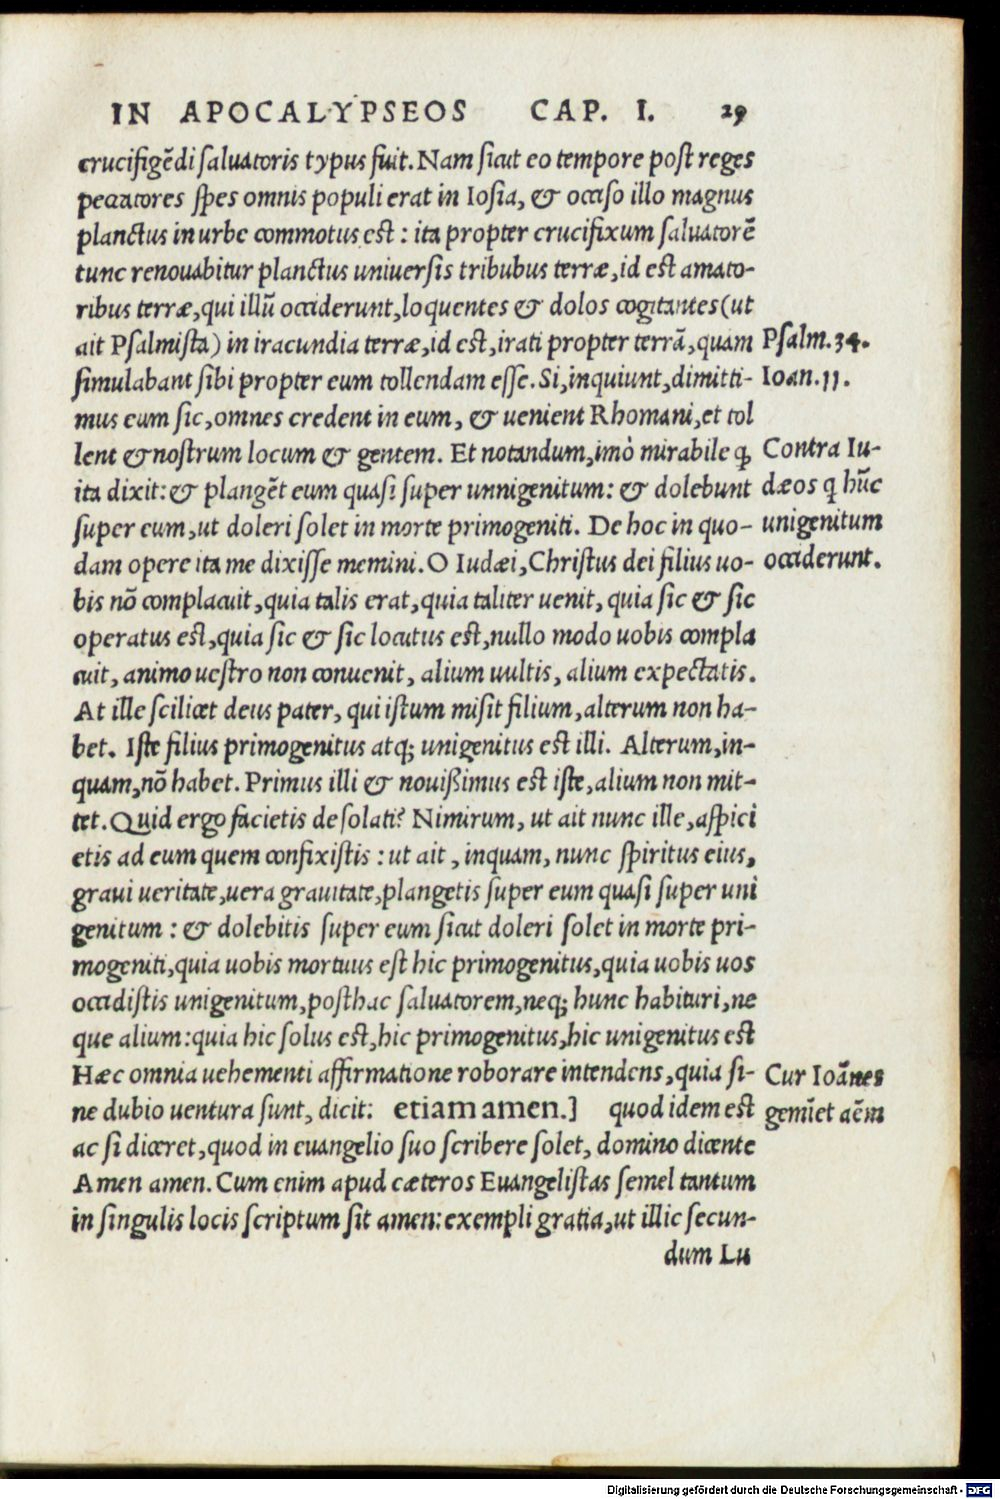 IN APOCALYPSEOS CAP. I. 29
crucifigēdi saluatoris typus fuit. Nam sicut eo tempore post reges
peccatores spes omnis populi erat in Iosia, & occiso illo magnus
planctus in urbe commotus est: ita propter crucifixum saluatorē
tunc renouabitur planctus uniuersis tribubus terræ, id est amato-
ribus terræ, qui illū occiderunt, loquentes & dolos cogitantes (ut
ait Psalmista) in iracundia terræ, id est, irati propter terrā, quam
simulabant sibi propter eum tollendam esse. Si, inquiunt, dimitti-
mus eum sic, omnes credent in eum, & uenient Rhomani, et tol
lent & nostrum locum & gentem. Et notandum, imò mirabile ꝙ
ita dixit: & plangēt eum quasi super unnigenitum: & dolebunt
super eum, ut doleri solet in morte primogeniti. De hoc in quo-
dam opere ita me dixisse memini. O Iudæi, Christus dei filius uo-
bis nō complacuit, quia talis erat, quia taliter uenit, quia sic & sic
operatus est, quia sic & sic locutus est, nullo modo uobis compla
cuit, animo uestro non conuenit, alium uultis, alium expectatis.
At ille scilicet deus pater, qui istum misit filium, alterum non ha-
bet. Iste filius primogenitus atq; unigenitus est illi. Alterum, in-
quam, nō habet. Primus illi & nouißimus est iste, alium non mit-
tet. Quid ergo facietis desolati? Nimirum, ut ait nunc ille, aspici
etis ad eum quem confixistis: ut ait, inquam, nunc spiritus eius,
graui ueritate, uera grauitate, plangetis super eum quasi super uni
genitum: & dolebitis super eum sicut doleri solet in morte pri-
mogeniti, quia uobis mortuus est hic primogenitus, quia uobis uos
occidistis unigenitum, posthac saluatorem, neq; hunc habituri, ne
que alium: quia hic solus est, hic primogenitus, hic unigenitus est
Hæc omnia uehementi affirmatione roborare intendens, quia si-
ne dubio uentura sunt, dicit: etiam amen.] quod idem est
ac si diceret, quod in euangelio suo scribere solet, domino dicente
Amen amen. Cum enim apud cæteros Euangelistas semel tantum
in singulis locis scriptum sit amen: exempli gratia, ut illic secun-
dum Lu
Psalm. 34.
Ioan. 11.
Contra Iu-
dæos q hūc
unigenitum
occiderunt.
Cur Ioānes
gemīet aēm
Digitalisierung gefördert durch die Deutsche Forschungsgemeinschaft - DFG